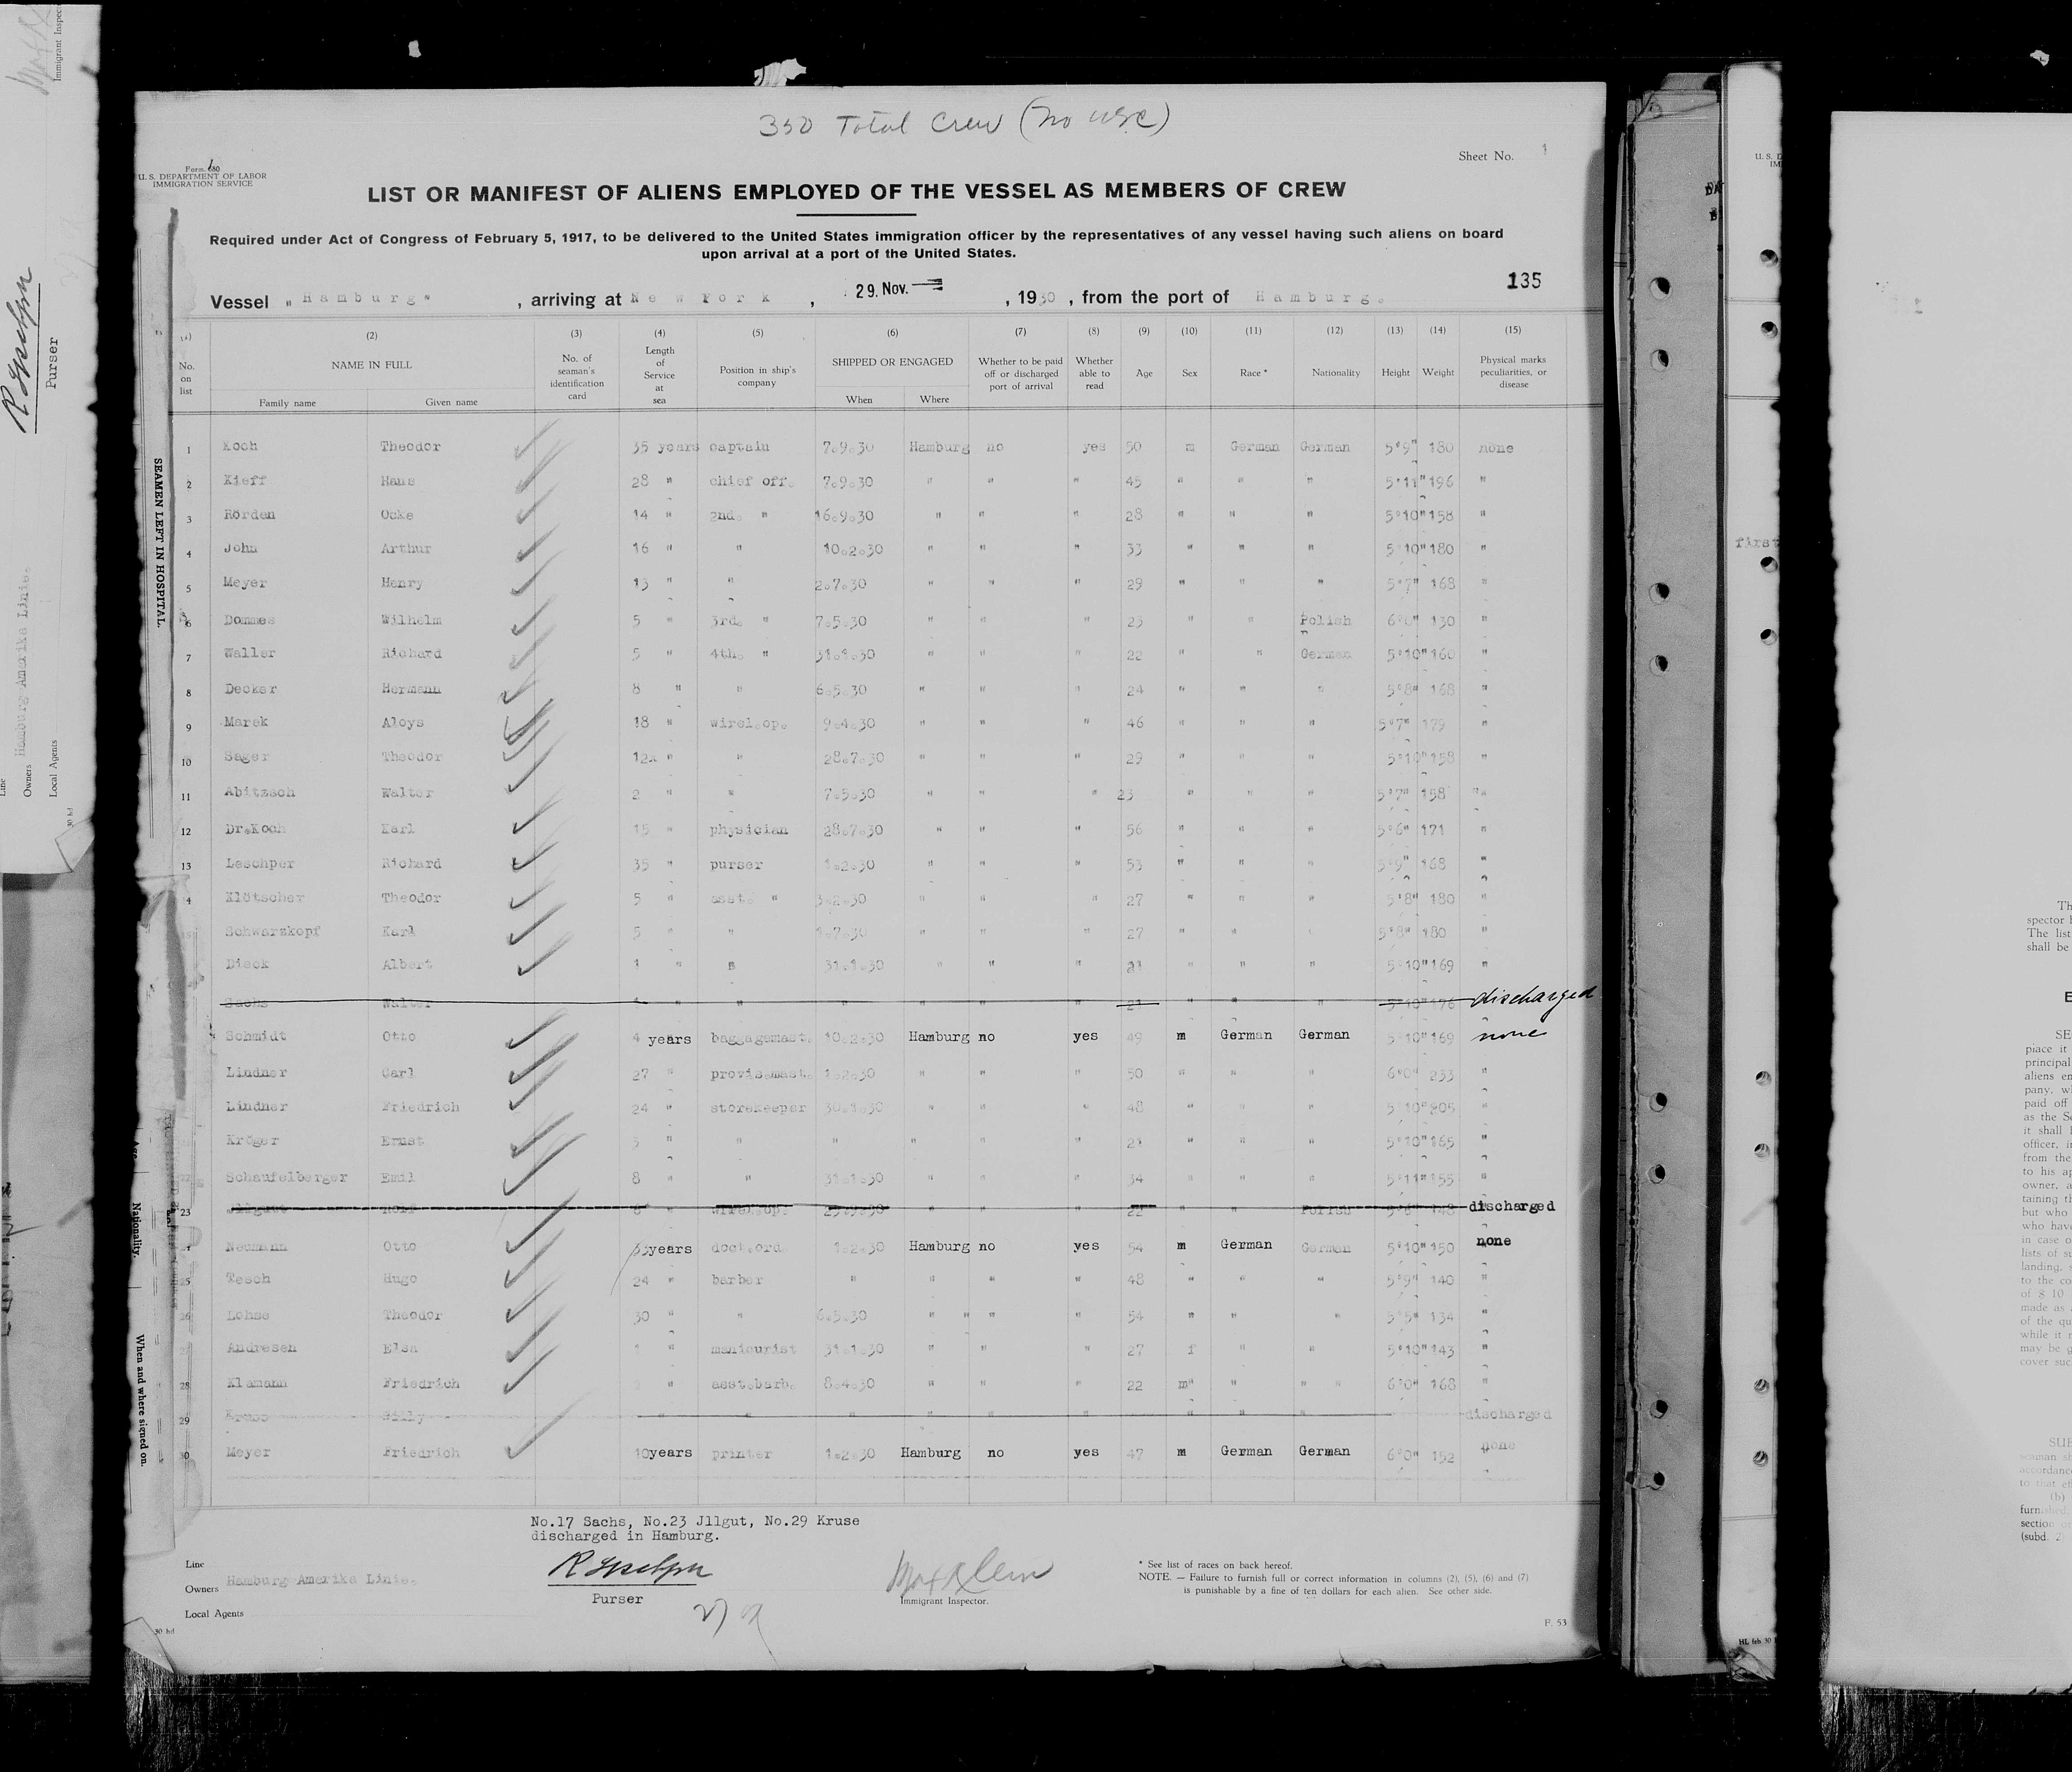 350 Total Crew (no USC)
Sheet No. 1
Form 680
U. S. DEPARTMENT OF LABOR
IMMIGRATION SERVICE
LIST OR MANIFEST OF ALIENS EMPLOYED OF THE VESSEL AS MEMBERS OF CREW
Required under Act of Congress of February 5, 1917, to be delivered to the United States immigration officer by the representatives of any vessel having such aliens on board
upon arrival at a port of the United States.
135
Vessel „Hamburg" , arriving at New York , 29. Nov. , 1930 , from the port of Hamburg.
(1) (2) (3) (4) (5) (6) (7) (8) (9) (10) (11) (12) (13) (14) (15)
No. on list NAME IN FULL Family name Given name No. of seaman's identification card Length of Service at sea Position in ship's company SHIPPED OR ENGAGED When Where Whether to be paid off or discharged port of arrival Whether able to read Age Sex Race * Nationality Height Weight Physical marks peculiarities, or disease
1 Koch Theodor 35 years captain 7.9.30 Hamburg no yes 50 m German German 5'9" 180 none
2 Kieff Hans 28 " chief off. 7.9.30 " " " 45 " " " 5'11" 196 "
3 Rörden Ocke 14 " 2nd. " 16.9.30 " " " 28 " " " 5'10" 158 "
4 John Arthur 16 " " 10.2.30 " " " 33 " " " 5'10" 180 "
5 Meyer Henry 13 " " 2.7.30 " " " 29 " " " 5'7" 168 "
6 Dommes Wilhelm 5 " 3rd. " 7.5.30 " " " 23 " " Polish 6'0" 130 "
7 Waller Richard 5 " 4th. " 31.1.30 " " " 22 " " German 5'10" 160 "
8 Decker Hermann 8 " " 6.5.30 " " " 24 " " " 5'8" 168 "
9 Marek Aloys 18 " wirel.op. 9.4.30 " " " 46 " " " 5'7" 179 "
10 Sager Theodor 12 " " 28.7.30 " " " 29 " " " 5'10" 158 "
11 Abitzsch Walter 2 " " 7.5.30 " " " 23 " " " 5'7" 158 "
12 Dr.Koch Karl 15 " physician 28.7.30 " " " 56 " " " 5'6" 171 "
13 Leschper Richard 35 " purser 1.2.30 " " " 53 " " " 5'9" 168 "
4 Klötscher Theodor 5 " asst. " 3.2.30 " " " 27 " " " 5'8" 180 "
Schwarzkopf Karl 5 " " 1.7.30 " " " 27 " " " 5'8" 180 "
Dieck Albert 1 " " 31.1.30 " " " 21 " " " 5'10" 169 "
Sachs Walter " " " " " 21 " " " 5'10" 176 discharged
Schmidt Otto 4 years baggagemast. 10.2.30 Hamburg no yes 49 m German German 5'10" 169 none
Lindner Carl 27 " provis.mast. 1.2.30 " " " 50 " " " 6'0" 233 "
Lindner Friedrich 24 " storekeeper 30.1.30 " " " 48 " " " 5'10" 205 "
Kröger Ernst " " " " " " 21 " " " 5'10" 165 "
Schaufelberger Emil 8 " " 31.1.30 " " " 34 " " " 5'11" 155 "
23 wirel.op. 22 " " Polish discharged
Neumann Otto 33years doct.ord. 1.2.30 Hamburg no yes 54 m German German 5'10" 150 none
25 Tesch Hugo 24 " barber " " " " 48 " " " 5'9" 140 "
26 Lohse Theodor 30 " " 6.5.30 " " " " 54 " " " 5'5" 134 "
Andresen Elsa 1 " manicurist 31.1.30 " " " 27 f " " 5'10" 143 "
28 Klamann Friedrich " asst.barb. 8.4.30 " " " 22 m" " " " 6'0" 168 "
29 Kruse Willy " " " " " " " " " discharged
30 Meyer Friedrich 10years printer 1.2.30 Hamburg no yes 47 m German German 6'0" 152 none
No.17 Sachs, No.23 Jllgut, No.29 Kruse
discharged in Hamburg.
Line
Owners Hamburg-Amerika Linie.
Local Agents
30 hd
Purser
Max Klein
Immigrant Inspector.
* See list of races on back hereof.
NOTE. — Failure to furnish full or correct information in columns (2), (5), (6) and (7)
is punishable by a fine of ten dollars for each alien. See other side.
F. 53
SEAMEN LEFT IN HOSPITAL.
Nationality.
When and where signed on.
Immigrant Inspec
Purser
Line
Owners Hamburg Amerika Linie.
Local Agents
30 hd
U. S. D
IM
first
HL feb 30
Th
spector
The list
shall be
SE
place it
principal
aliens en
pany, w
paid off
as the Se
it shall
officer, i
from the
to his ap
owner, a
taining t
but who
who hav
in case o
lists of s
landing, s
to the co
of § 10
made as
of the qu
while it
may be g
cover suc
SUB
seaman sh
accordanc
to that ef
(b)
furnished,
section
(subd. 2